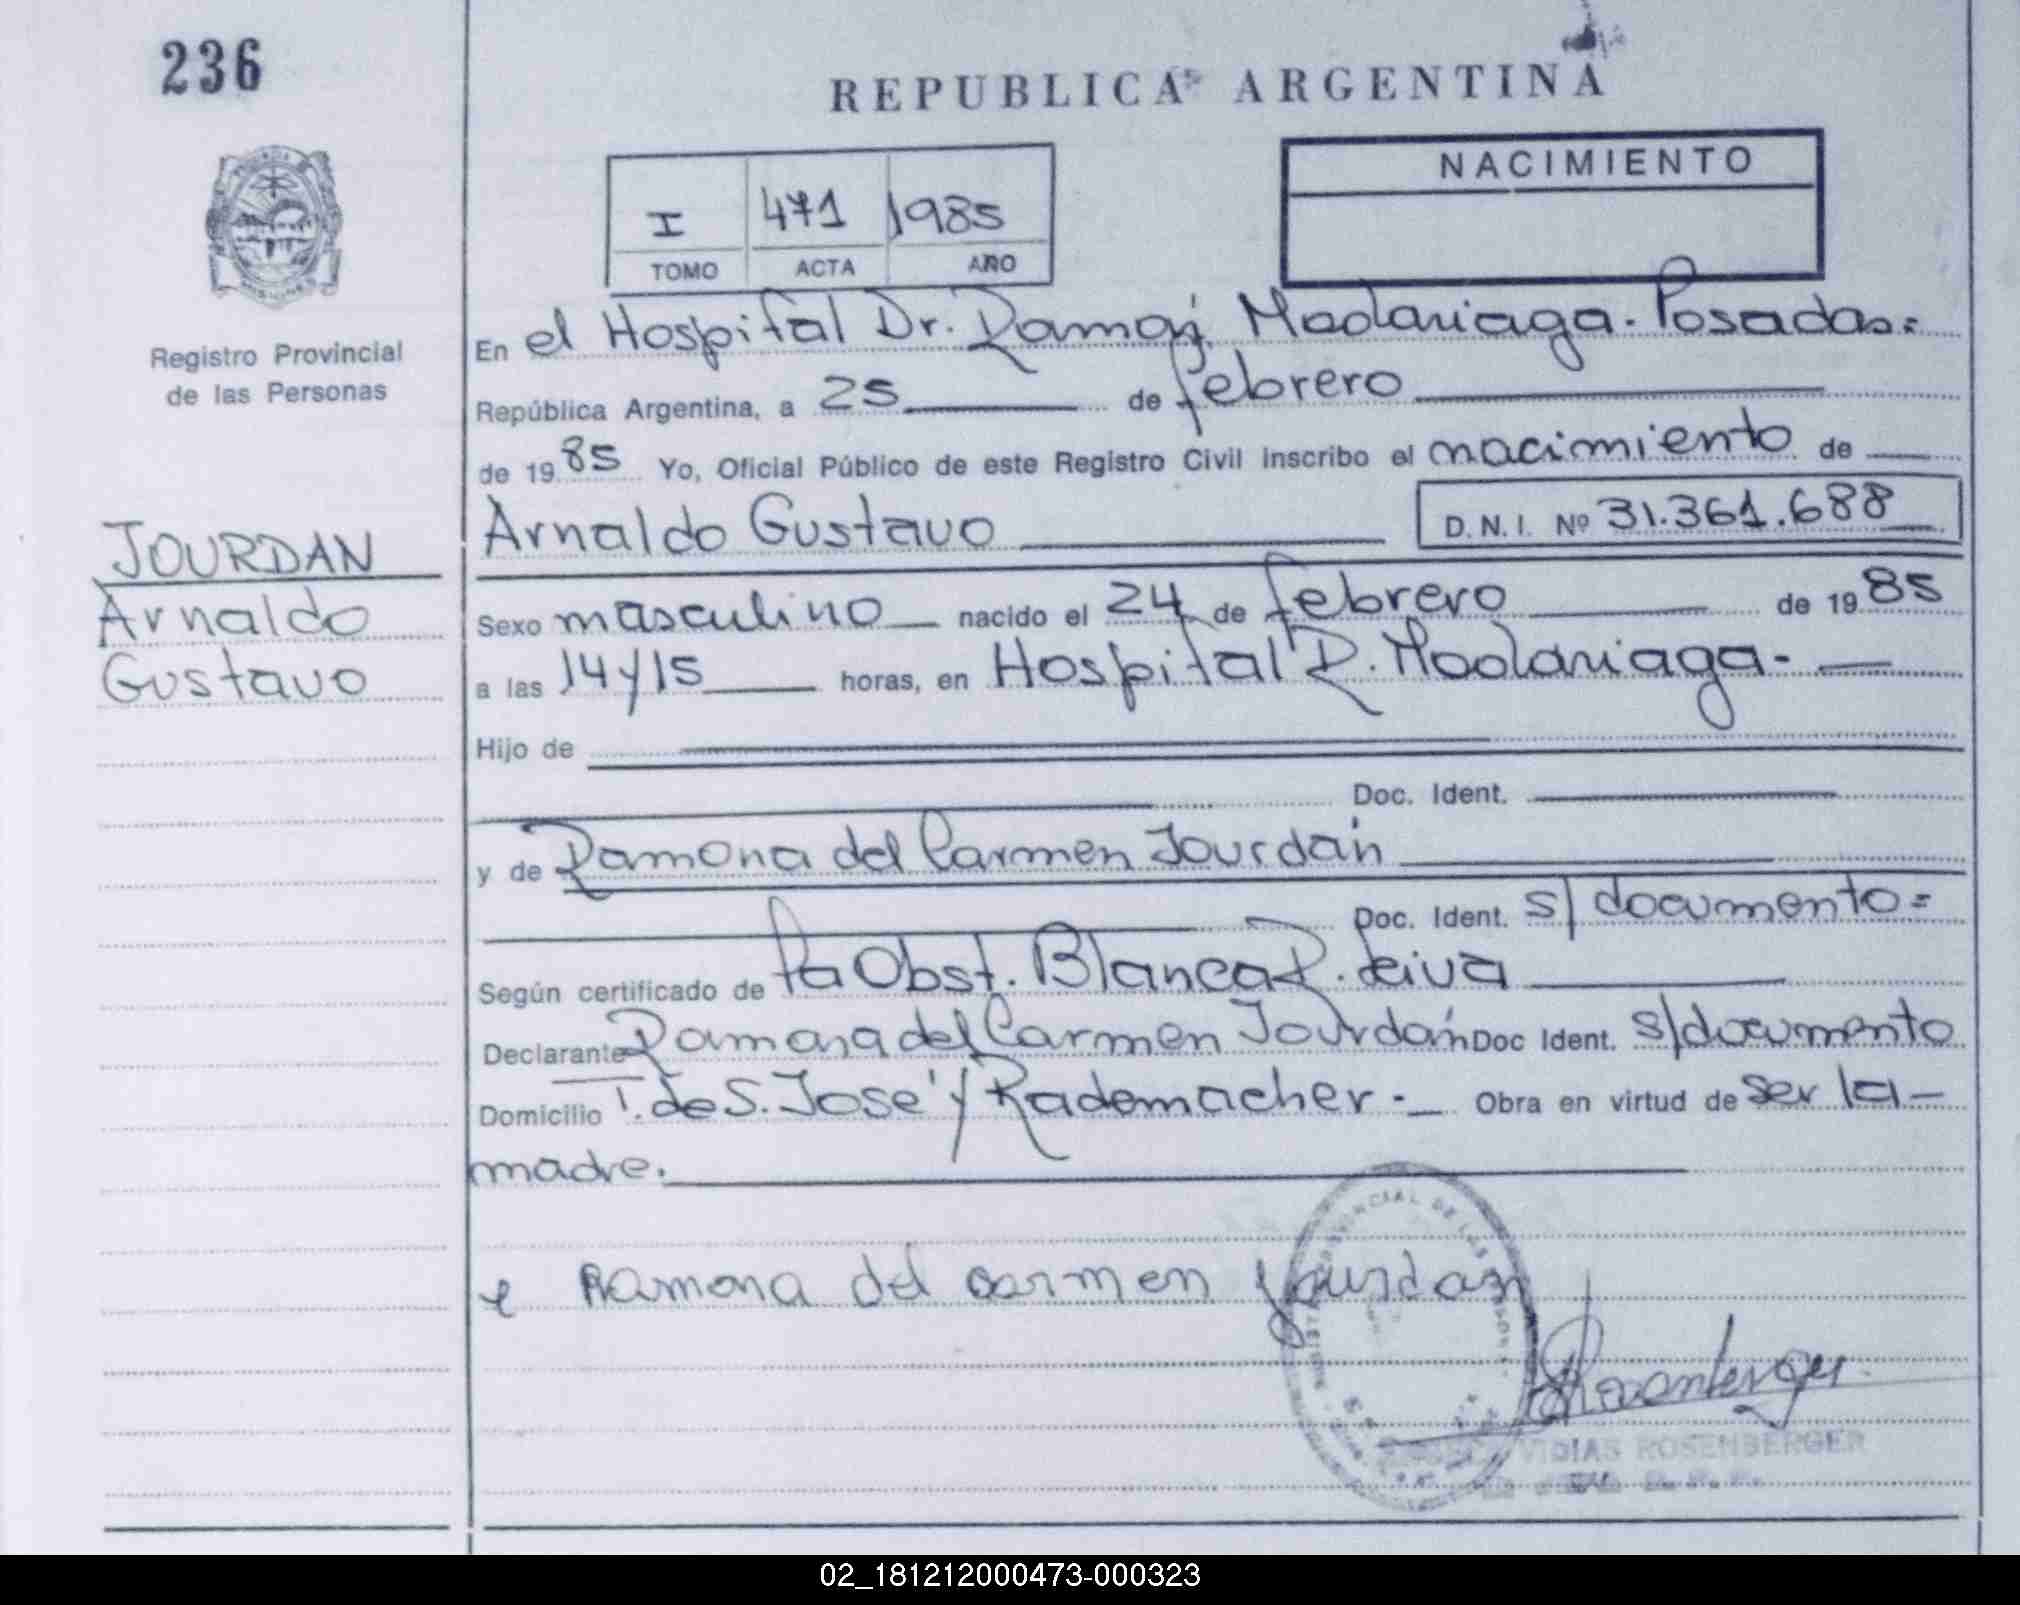 236
REPUBLICA ARGENTINA
NACIMIENTO
I 471 1985
TOMO ACTA AÑO
Registro Provincial
de las Personas
En el Hospital Dr. Ramón Madariaga. Posadas.=
República Argentina, a 25 de febrero
de 1985 Yo, Oficial Público de este Registro Civil inscribo el nacimiento de
Arnaldo Gustavo D.N.I. Nº 31.361.688
JOURDAN
Arnaldo
Gustavo
Sexo masculino nacido el 24 de febrero de 1985
a las 14 y 15 horas, en Hospital R. Madariaga.-
Hijo de
Doc. Ident.
y de Ramona del Carmen Jourdán
Doc. Ident. s/documento=
Según certificado de la Obst. Blanca R. Leiva
Declarante Ramona del Carmen Jourdán Doc Ident. s/documento
Domicilio T. de S. José y Rademacher.- Obra en virtud de ser la-
madre.
Ramona del carmen jourdan
Rosenberger
VIDIAS ROSENBERGER
02_181212000473-000323